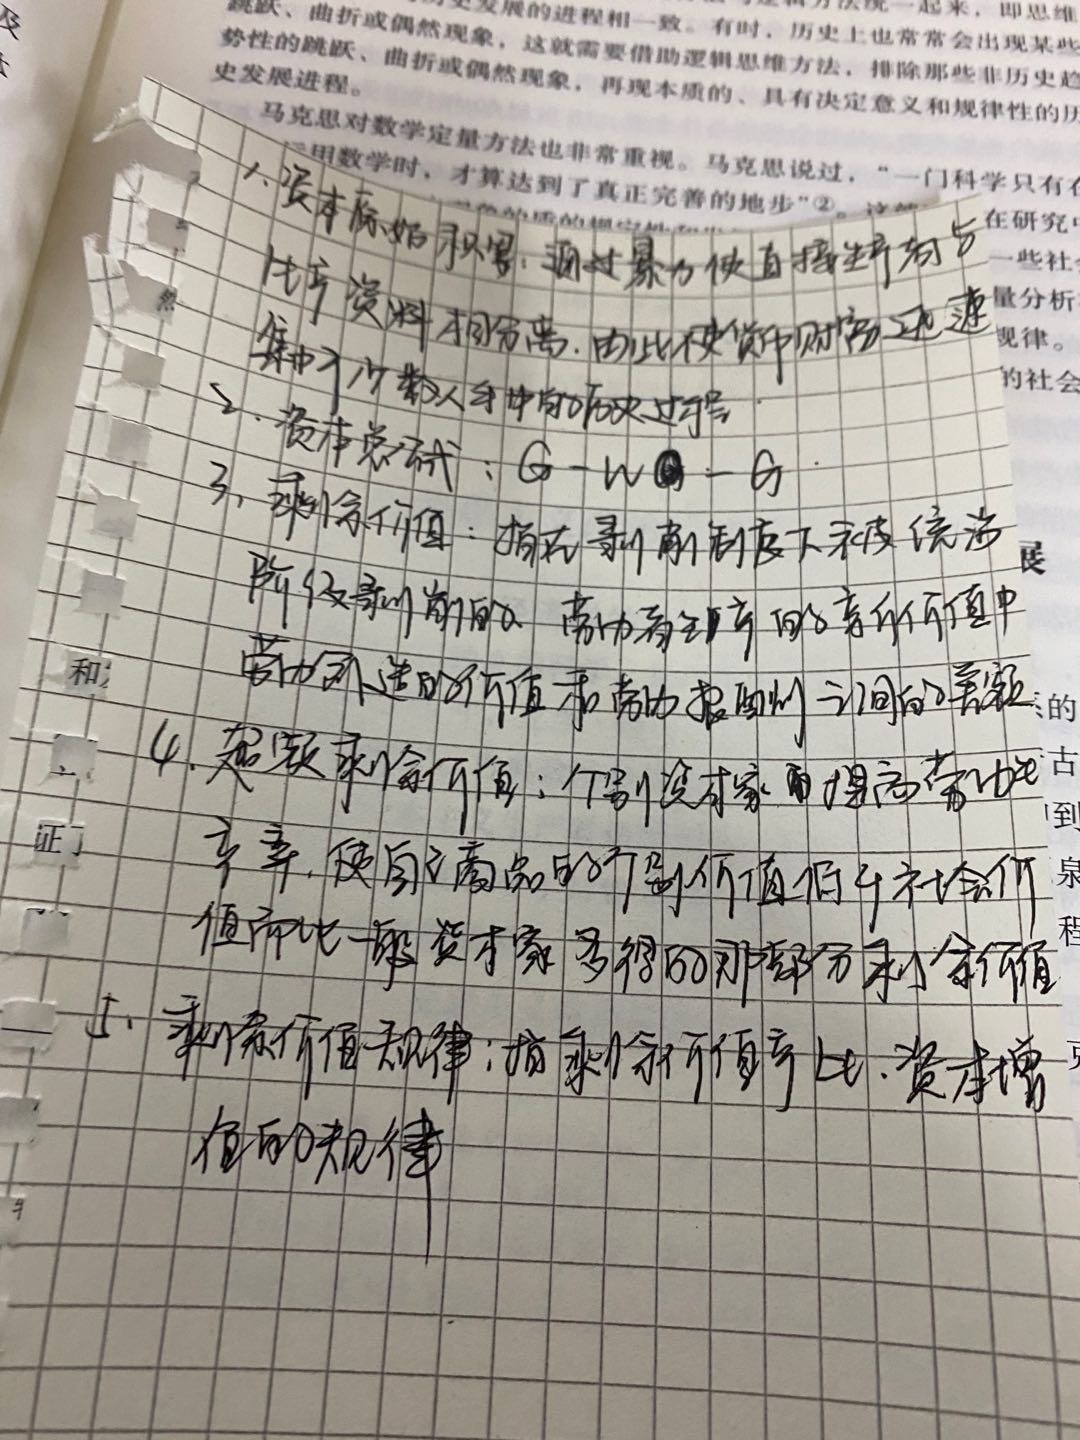 及
跳跃、曲折或偶然现象，这就需要借助逻辑思维方法，排除那些非历史趋
势性的跳跃、曲折或偶然现象，再现本质的、具有决定意义和规律性的历
史发展进程。
马克思对数学定量方法也非常重视。马克思说过，“一门科学只有在
运用数学时，才算达到了真正完善的地步”②。
在研究中
一些社会
量分析
规律。
的社会
1、资本原始积累：通过暴力使直接生产者与
生产资料相分离.由此使货币财富迅速
集中于少数人手中的历史过程.
2.资本总公式：G-W-G.
3、剩余价值：指在剥削制度下被统治
阶级剥削的 劳动者生产的产新价值中
劳动创造的价值和劳动报酬之间的差额
4.超额剩余价值：个别资本家由提高劳动生
产率.使自己商品的个别价值低于社会价
值而比一般资本家多得的那部分剩余价值
5、剩余价值规律：指剩余价值产生.资本增
值的规律
展
和
证
系的
古
到
泉
程